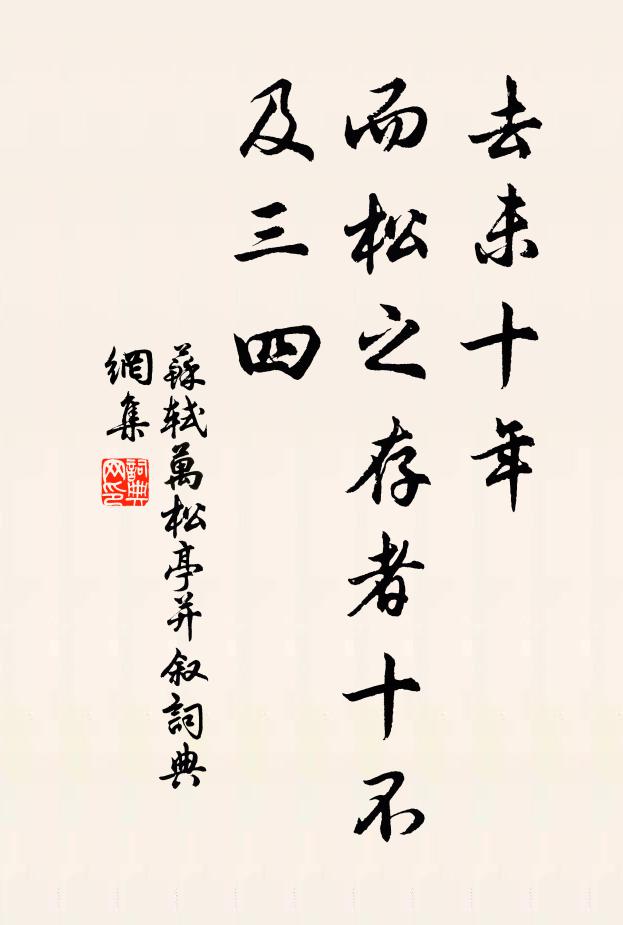 去未十年
而松之存者十不
及三四
蘇軾萬松亭并叙詞典
網集
詞典网印